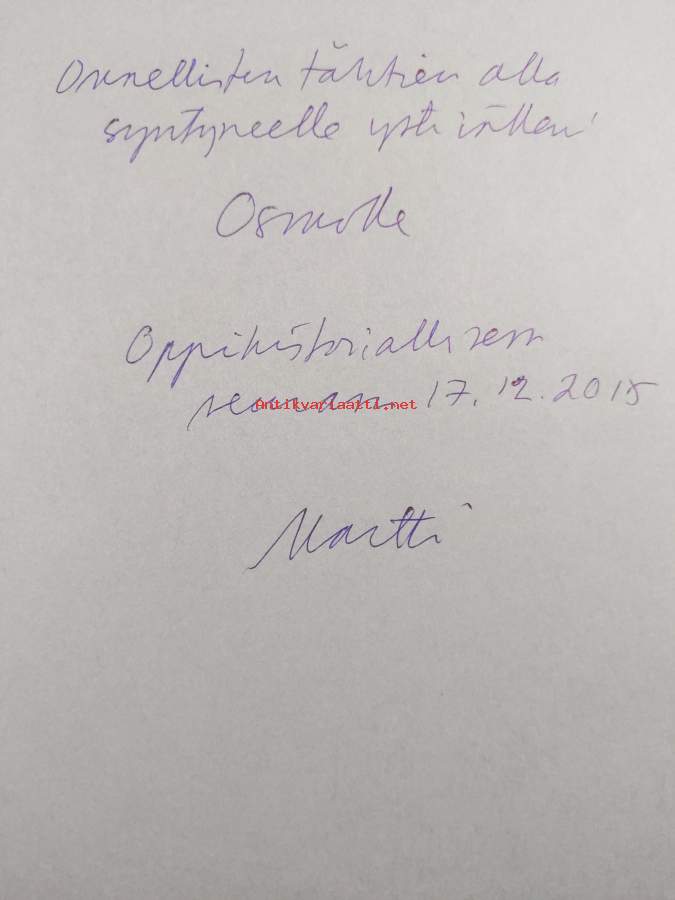 Onnellisten tähtien alla
syntyneelle ystävälleni
Osmolle
Oppihistoriallisessa
seurassa 17.12.2015
Antikvariaatti.net
Martti